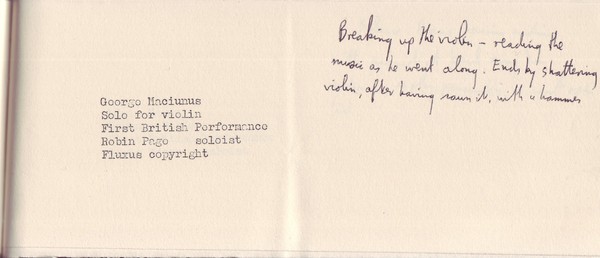 George Maciunus
Solo for violin
First British Performance
Robin Page soloist
Fluxus copyright
Breaking up the violin – reading the
music as he went along. Ends by shattering
violin, after having sawn it, with a hammer